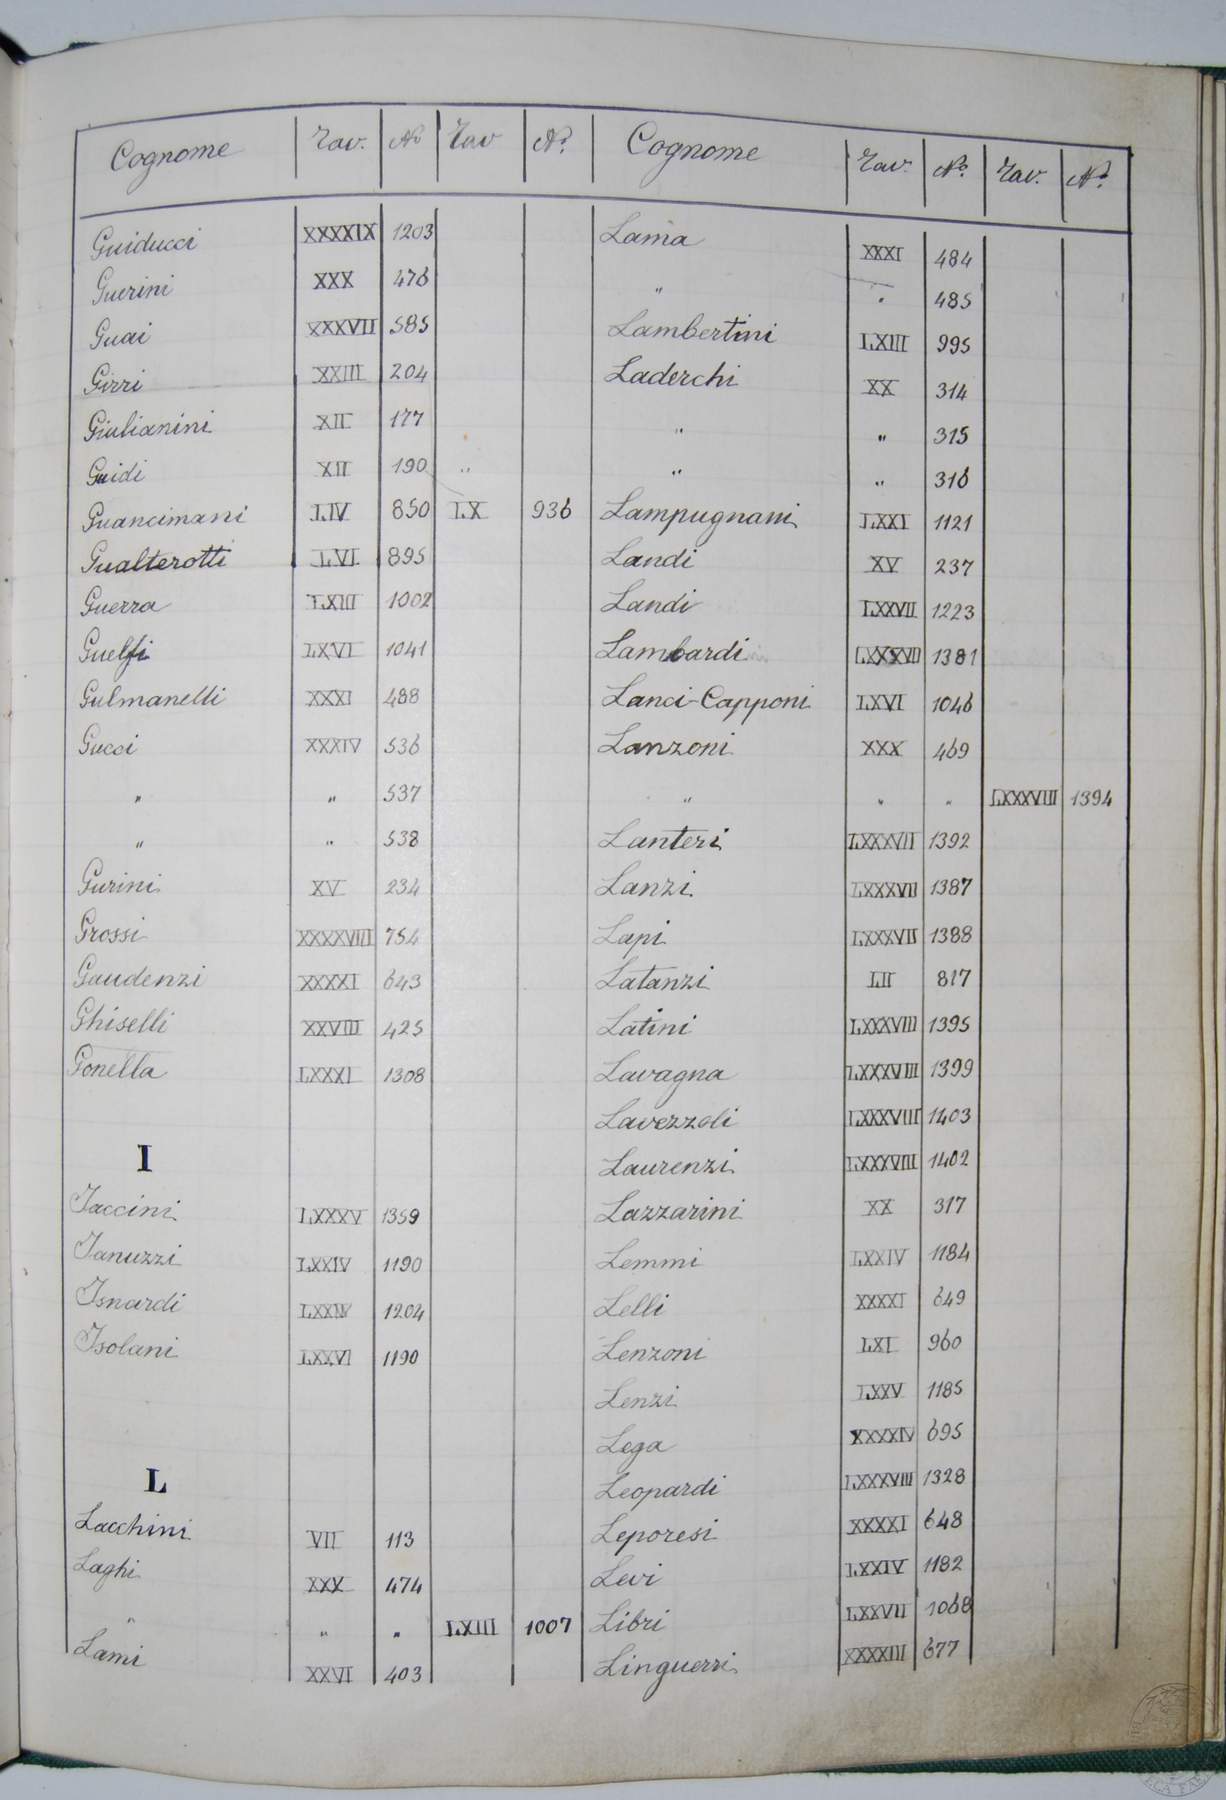 Cognome Tav. No Tav No.
Guiducci XXXXIX 1203
Guerini XXX 476
Guai XXXVII 585
Girri XXIII 204
Giulianini XII 177
Guidi XII 190 "
Guancimani LIV 850 LX 936
Gualterotti LVI 895
Guerra LXIII 1002
Guelfi LXVI 1041
Gulmanelli XXXI 488
Gucci XXXIV 536
" " 537
" " 538
Gurini XV 234
Grossi XXXXVIII 754
Gaudenzi XXXXI 643
Ghiselli XXVIII 425
Gonella LXXXI 1308
I
Iaccini LXXXV 1359
Ianuzzi LXXIV 1190
Isnardi 1204
Isolani LXXVI 1190
L
Lacchini VII 113
Laghi XXX 474
" " " LXIII 1007
Lami XXVI 403
Cognome Tav. No. Tav. No.
Lama XXXI 484
" " 485
Lambertini LXIII 995
Laderchi XX 314
" " 315
" " 316
Lampugnani LXXI 1121
Landi XV 237
Landi LXXVII 1223
Lambardi LXXXVII 1381
Lanci-Capponi LXVI 1046
Lanzoni XXX 469
" " " LXXXVIII 1394
Lanteri LXXXVII 1392
Lanzi LXXXVII 1387
Lapi LXXXVII 1388
Latanzi LII 817
Latini LXXXVIII 1395
Lavagna LXXXVIII 1399
Lavezzoli LXXXVIII 1403
Laurenzi LXXXVIII 1402
Lazzarini XX 317
Lemmi LXXIV 1184
Lelli XXXXI 649
Lenzoni LXI 960
Lenzi LXXV 1185
Lega XXXXIV 695
Leopardi LXXXVIII 1328
Leporesi XXXXI 648
Levi LXXIV 1182
Libri LXXVII 1068
Linguerri XXXXIII 677